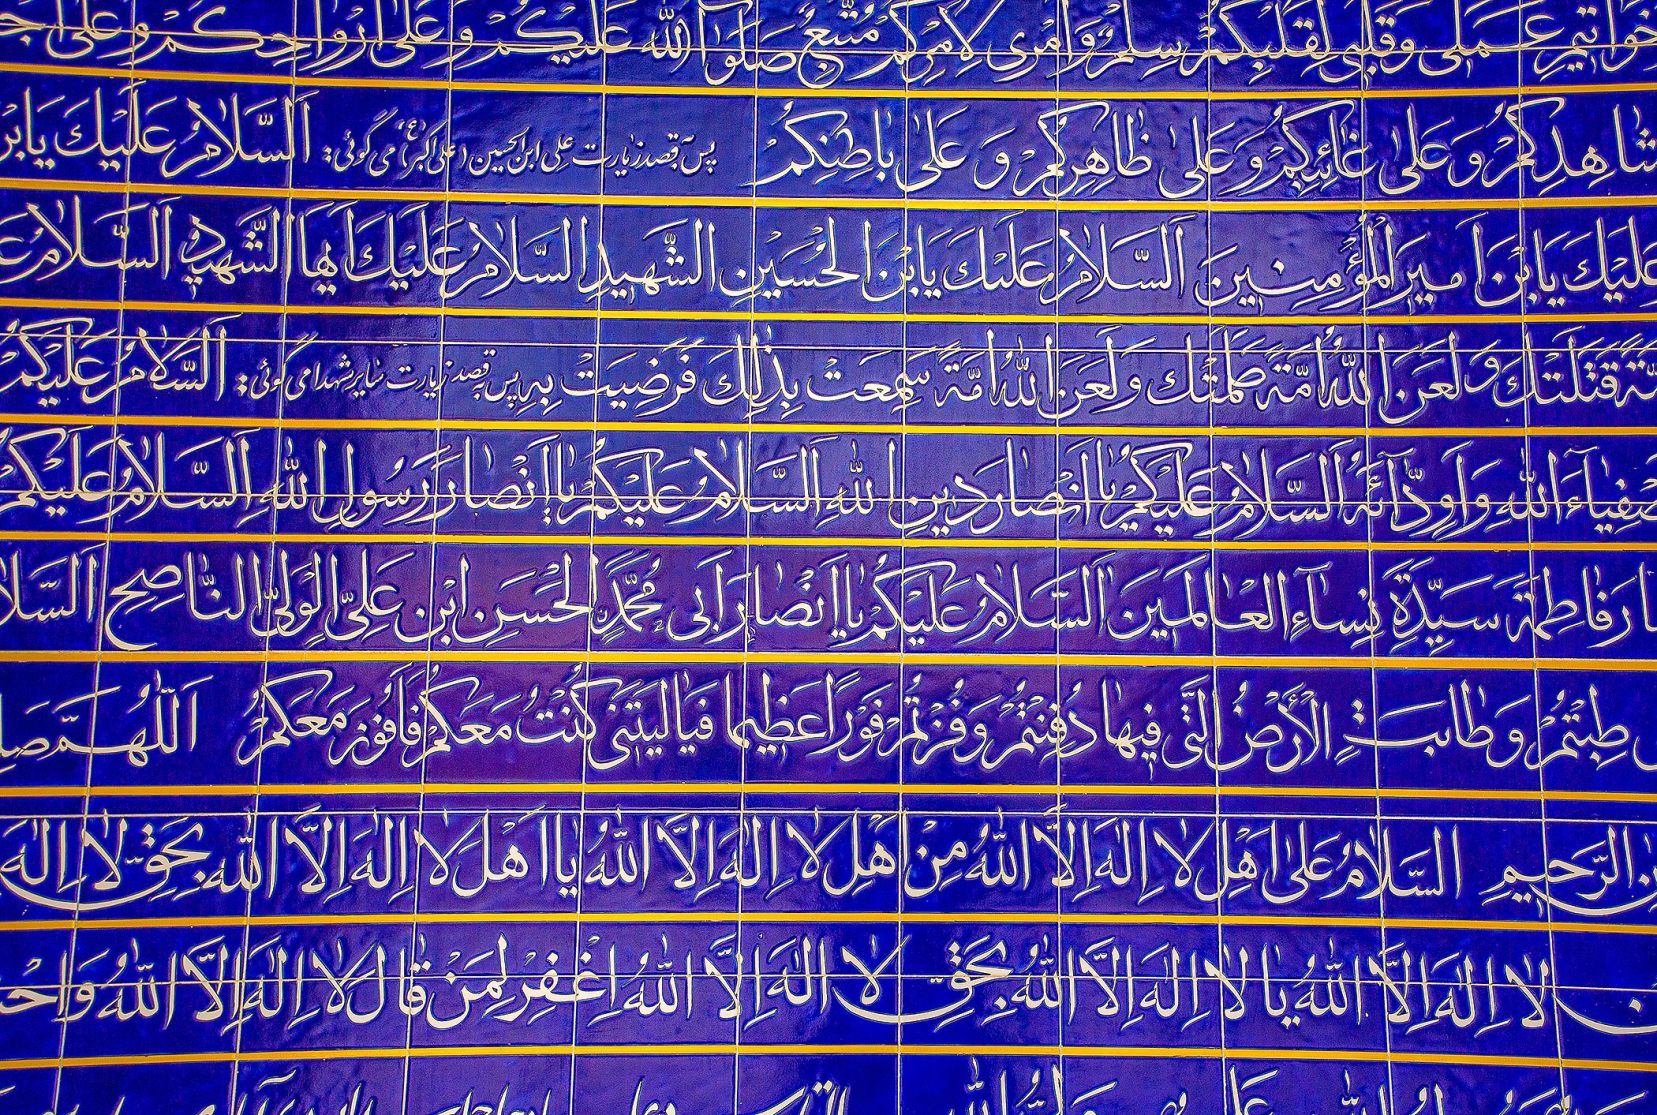 خواتيم عملى وقلبى لقلبكم سلم وامرى لامركم متبع صلوات الله عليكم وعلى ارواحكم وعلى
شاهدكم وعلى غائبكم وعلى ظاهركم وعلى باطنكم پس به قصد زیارت علی ابن الحسین (علی اکبر(ع)) می گوئی: اَلسَّلامُ عَلَيْكَ يَابْنَ
عَلَيْكَ يَابْنَ اَميرِ الْمُؤْمِنينَ اَلسَّلامُ عَلَيْكَ يَابْنَ الْحُسَيْنِ الشَّهيدِ اَلسَّلامُ عَلَيْكَ اَيُّهَا الشَّهيدُ اَلسَّلامُ
قَتَلَتْكَ وَلَعَنَ اللهُ اُمَّةً ظَلَمَتْكَ وَلَعَنَ اللهُ اُمَّةً سَمِعَتْ بِذلِكَ فَرَضِيَتْ بِهِ پس به قصد زیارت سایر شهدا می گوئی: اَلسَّلامُ عَلَيْكُمْ
اللهِ وَاَوِدّآئَهُ اَلسَّلامُ عَلَيْكُمْ يا اَنْصارَ دينِ اللهِ اَلسَّلامُ عَلَيْكُمْ يا اَنْصارَ رَسُولِ اللهِ اَلسَّلامُ عَلَيْكُمْ
فاطِمَةَ سَيِّدَةِ نِسآءِ الْعالَمينَ اَلسَّلامُ عَلَيْكُمْ يا اَنْصارَ اَبى مُحَمَّدٍ الْحَسَنِ ابْنِ عَلِىٍّ الْوَلِىِّ النّاصِحِ
طِبْتُمْ وَطابَتِ الْأَرْضُ الَّتى فيها دُفِنْتُمْ وَفُزْتُمْ فَوْزًا عَظيما فَيالَيْتَنى كُنْتُ مَعَكُمْ فَاَفُوزَ مَعَكُمْ اَللّهُمَّ
الرَّحيمِ اَلسَّلامُ عَلى اَهْلِ لا اِلهَ اِلاَّ اللهُ مِنْ اَهْلِ لا اِلهَ اِلاَّ اللهُ يا اَهْلَ لا اِلهَ اِلاَّ اللهُ بِحَقِّ لا اِلهَ
لا اِلهَ اِلاَّ اللهُ يا لا اِلهَ اِلاَّ اللهُ بِحَقِّ لا اِلهَ اِلاَّ اللهُ اِغْفِرْ لِمَنْ قالَ لا اِلهَ اِلاَّ اللهُ